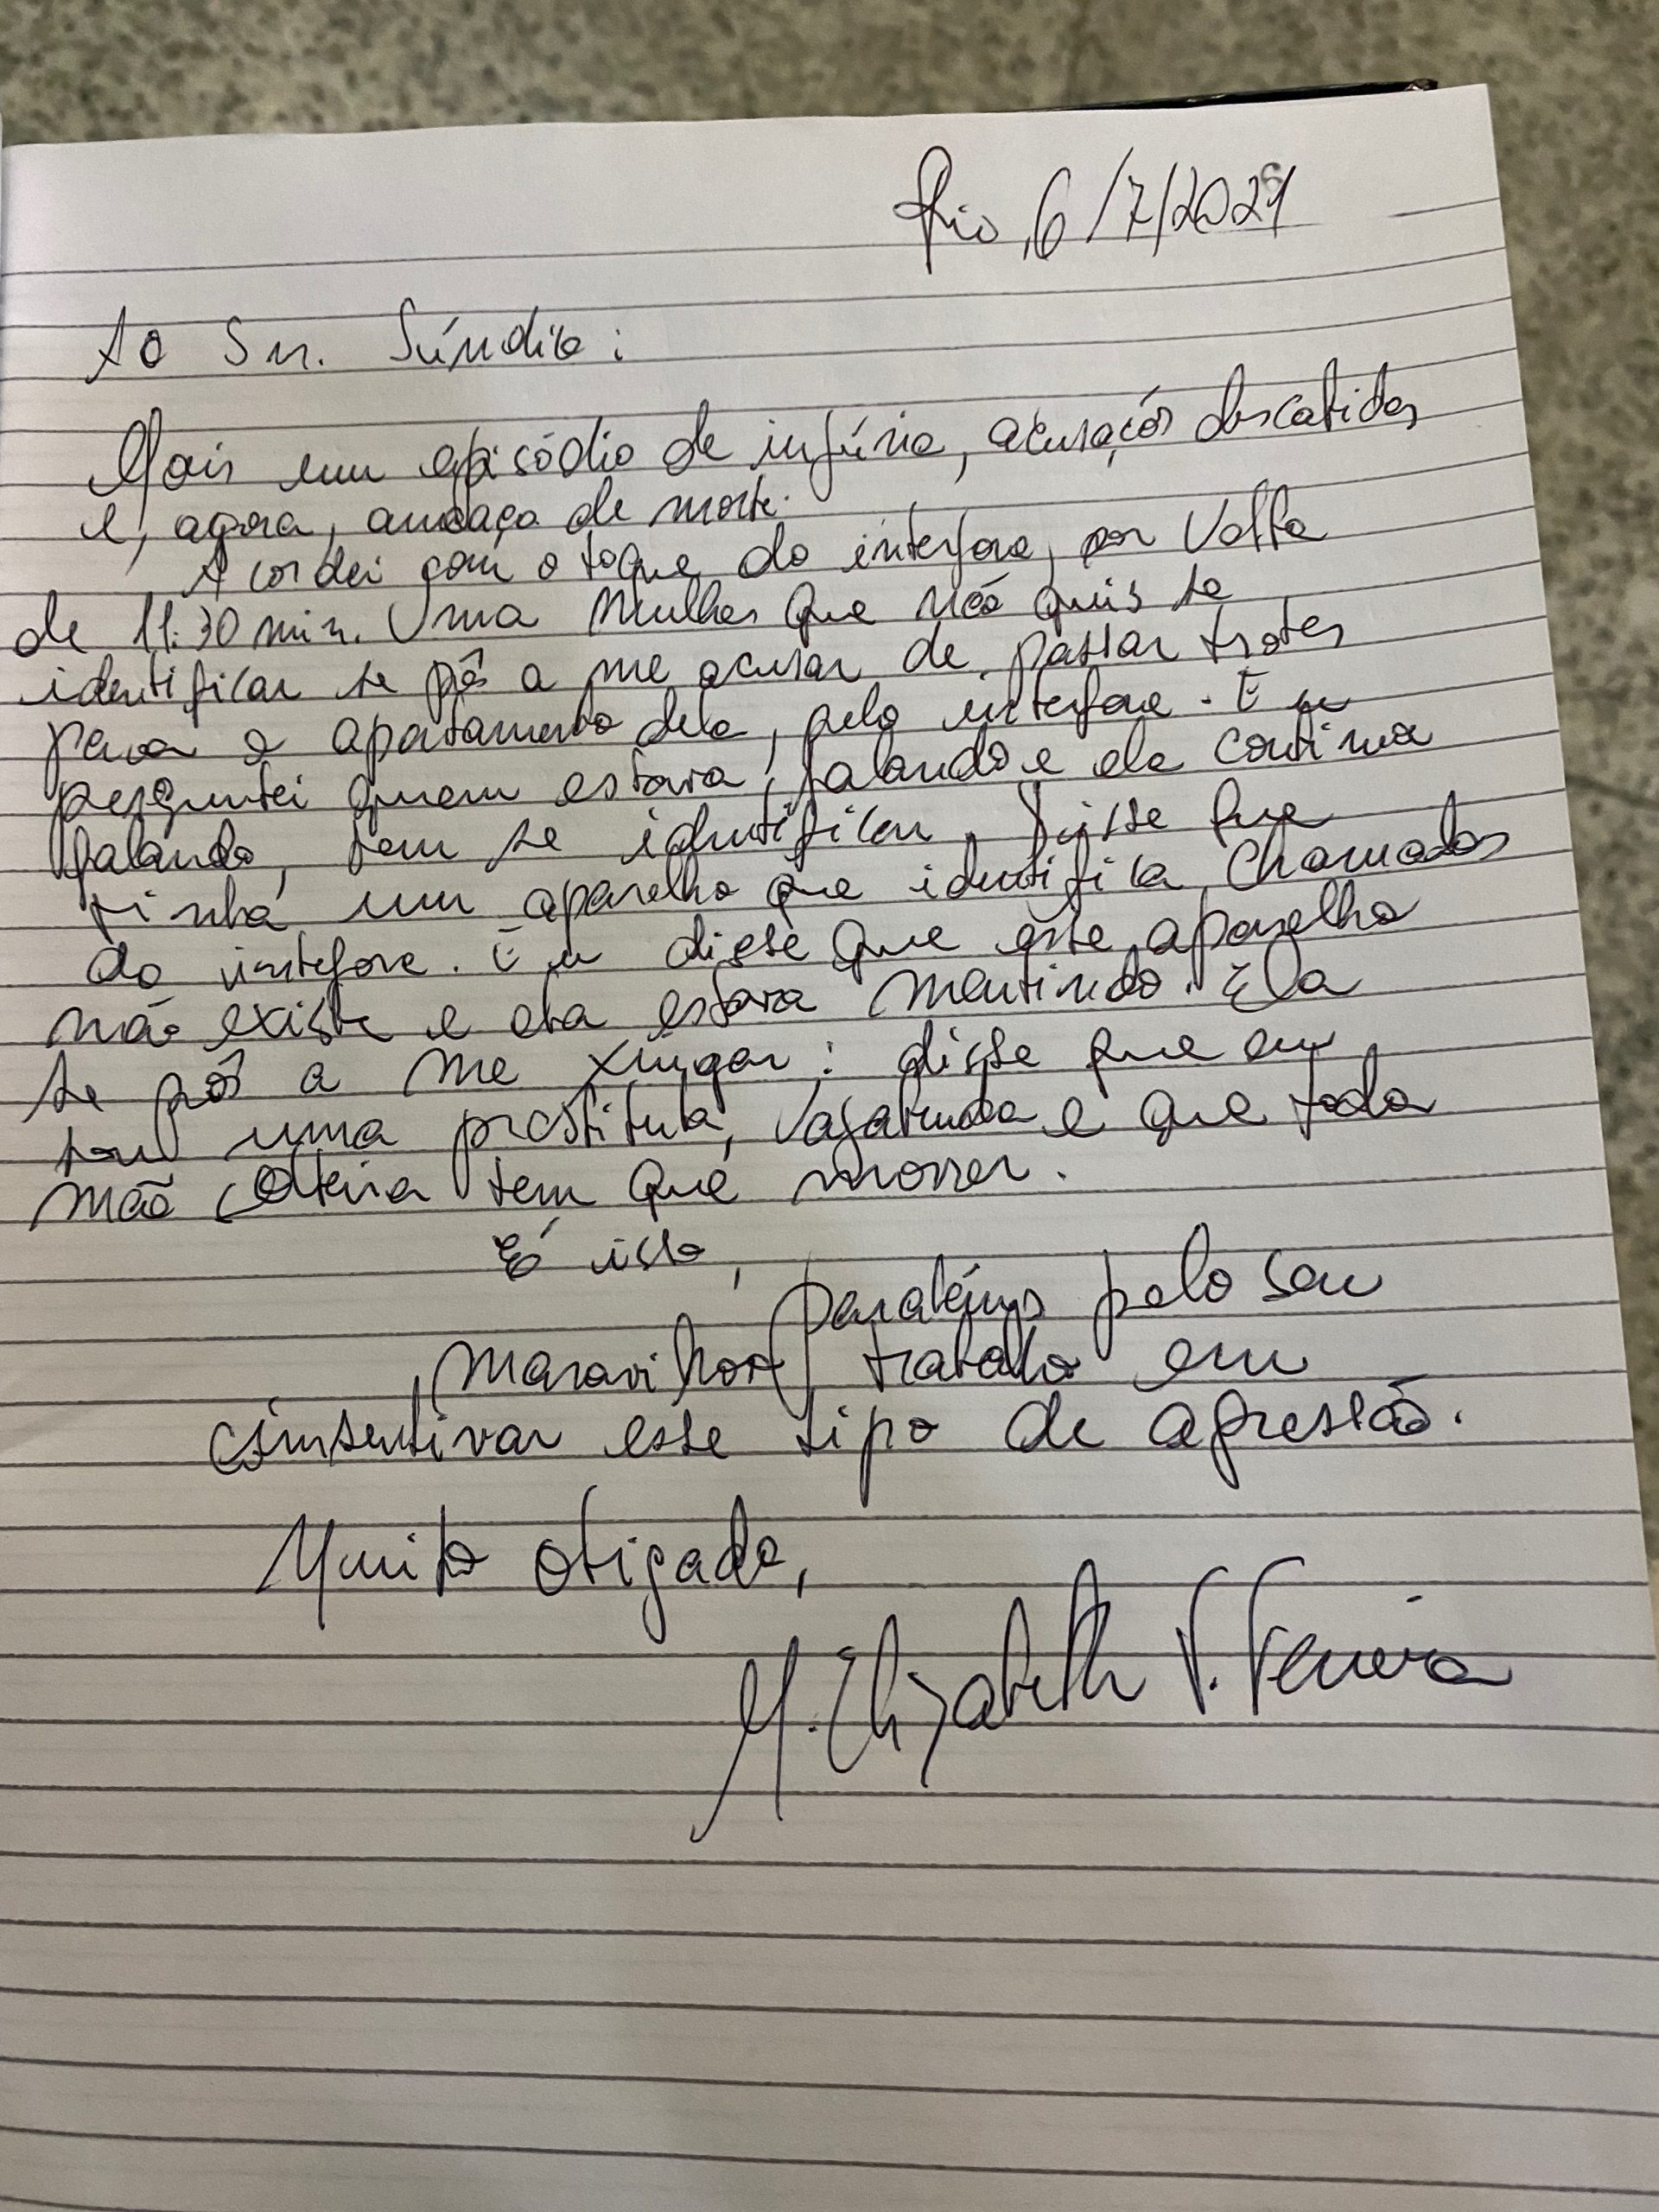 Rio, 6/7/202
Ao Snr. Síndico:
Mais um episódio de injúria, acusações descabidas
e, agora, ameaça de morte.
Acordei com o toque do interfone, por volta
de 11:30 min. Uma mulher que não quis se
identificar se pôs a me acusar de passar trotes
para o apartamento dela, pelo interfone. Eu
perguntei quem estava falando e ela continua
falando, sem se identificar. Disse que
tinha um aparelho que identifica chamadas
do interfone. Eu disse que este aparelho
não existe e ela estava mentindo. Ela
se pôs a me xingar: disse que eu
sou uma prostituta, vagabunda e que toda
mãe solteira tem que morrer.
É isso,
parabéns pelo seu
maravilhoso trabalho em
insentivar esse tipo de agressão.
Muito obrigada,
M. Elizabeth V. Ferreira